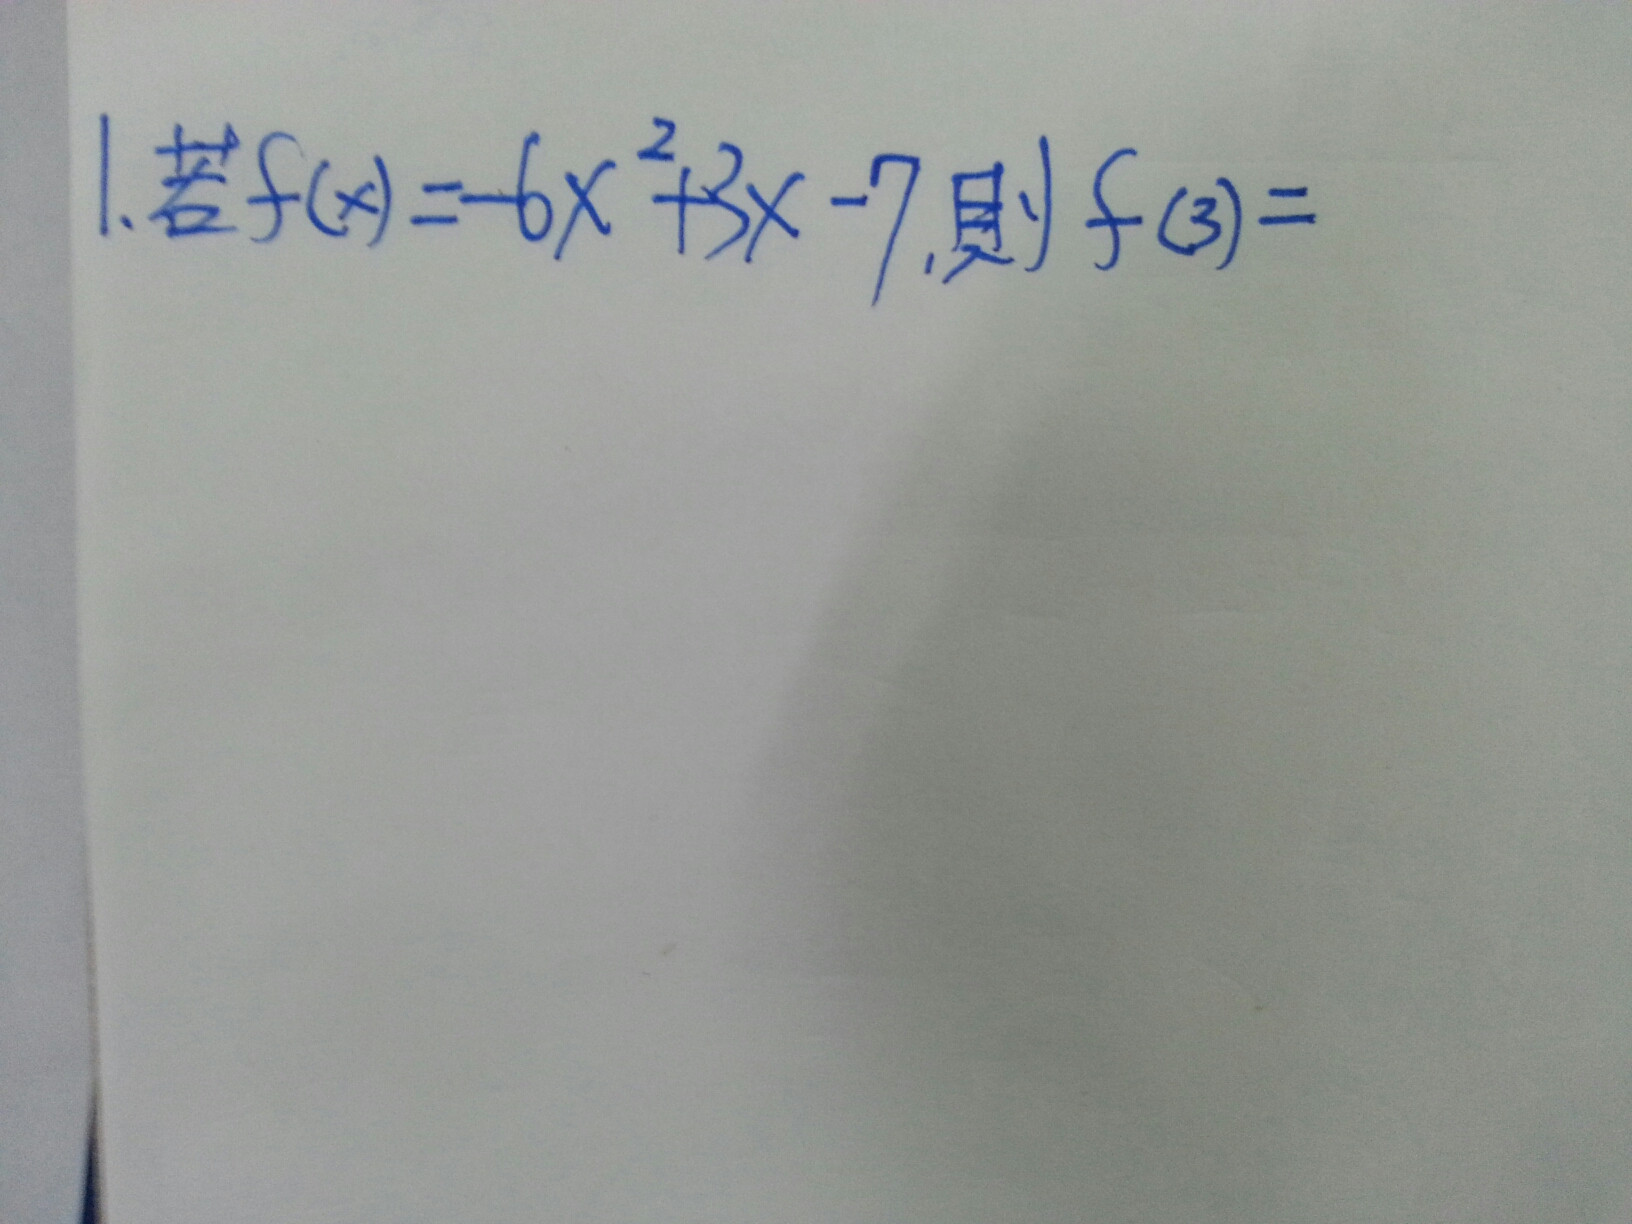 1.若f(x)=-6x²+3x-7,則f(3)=